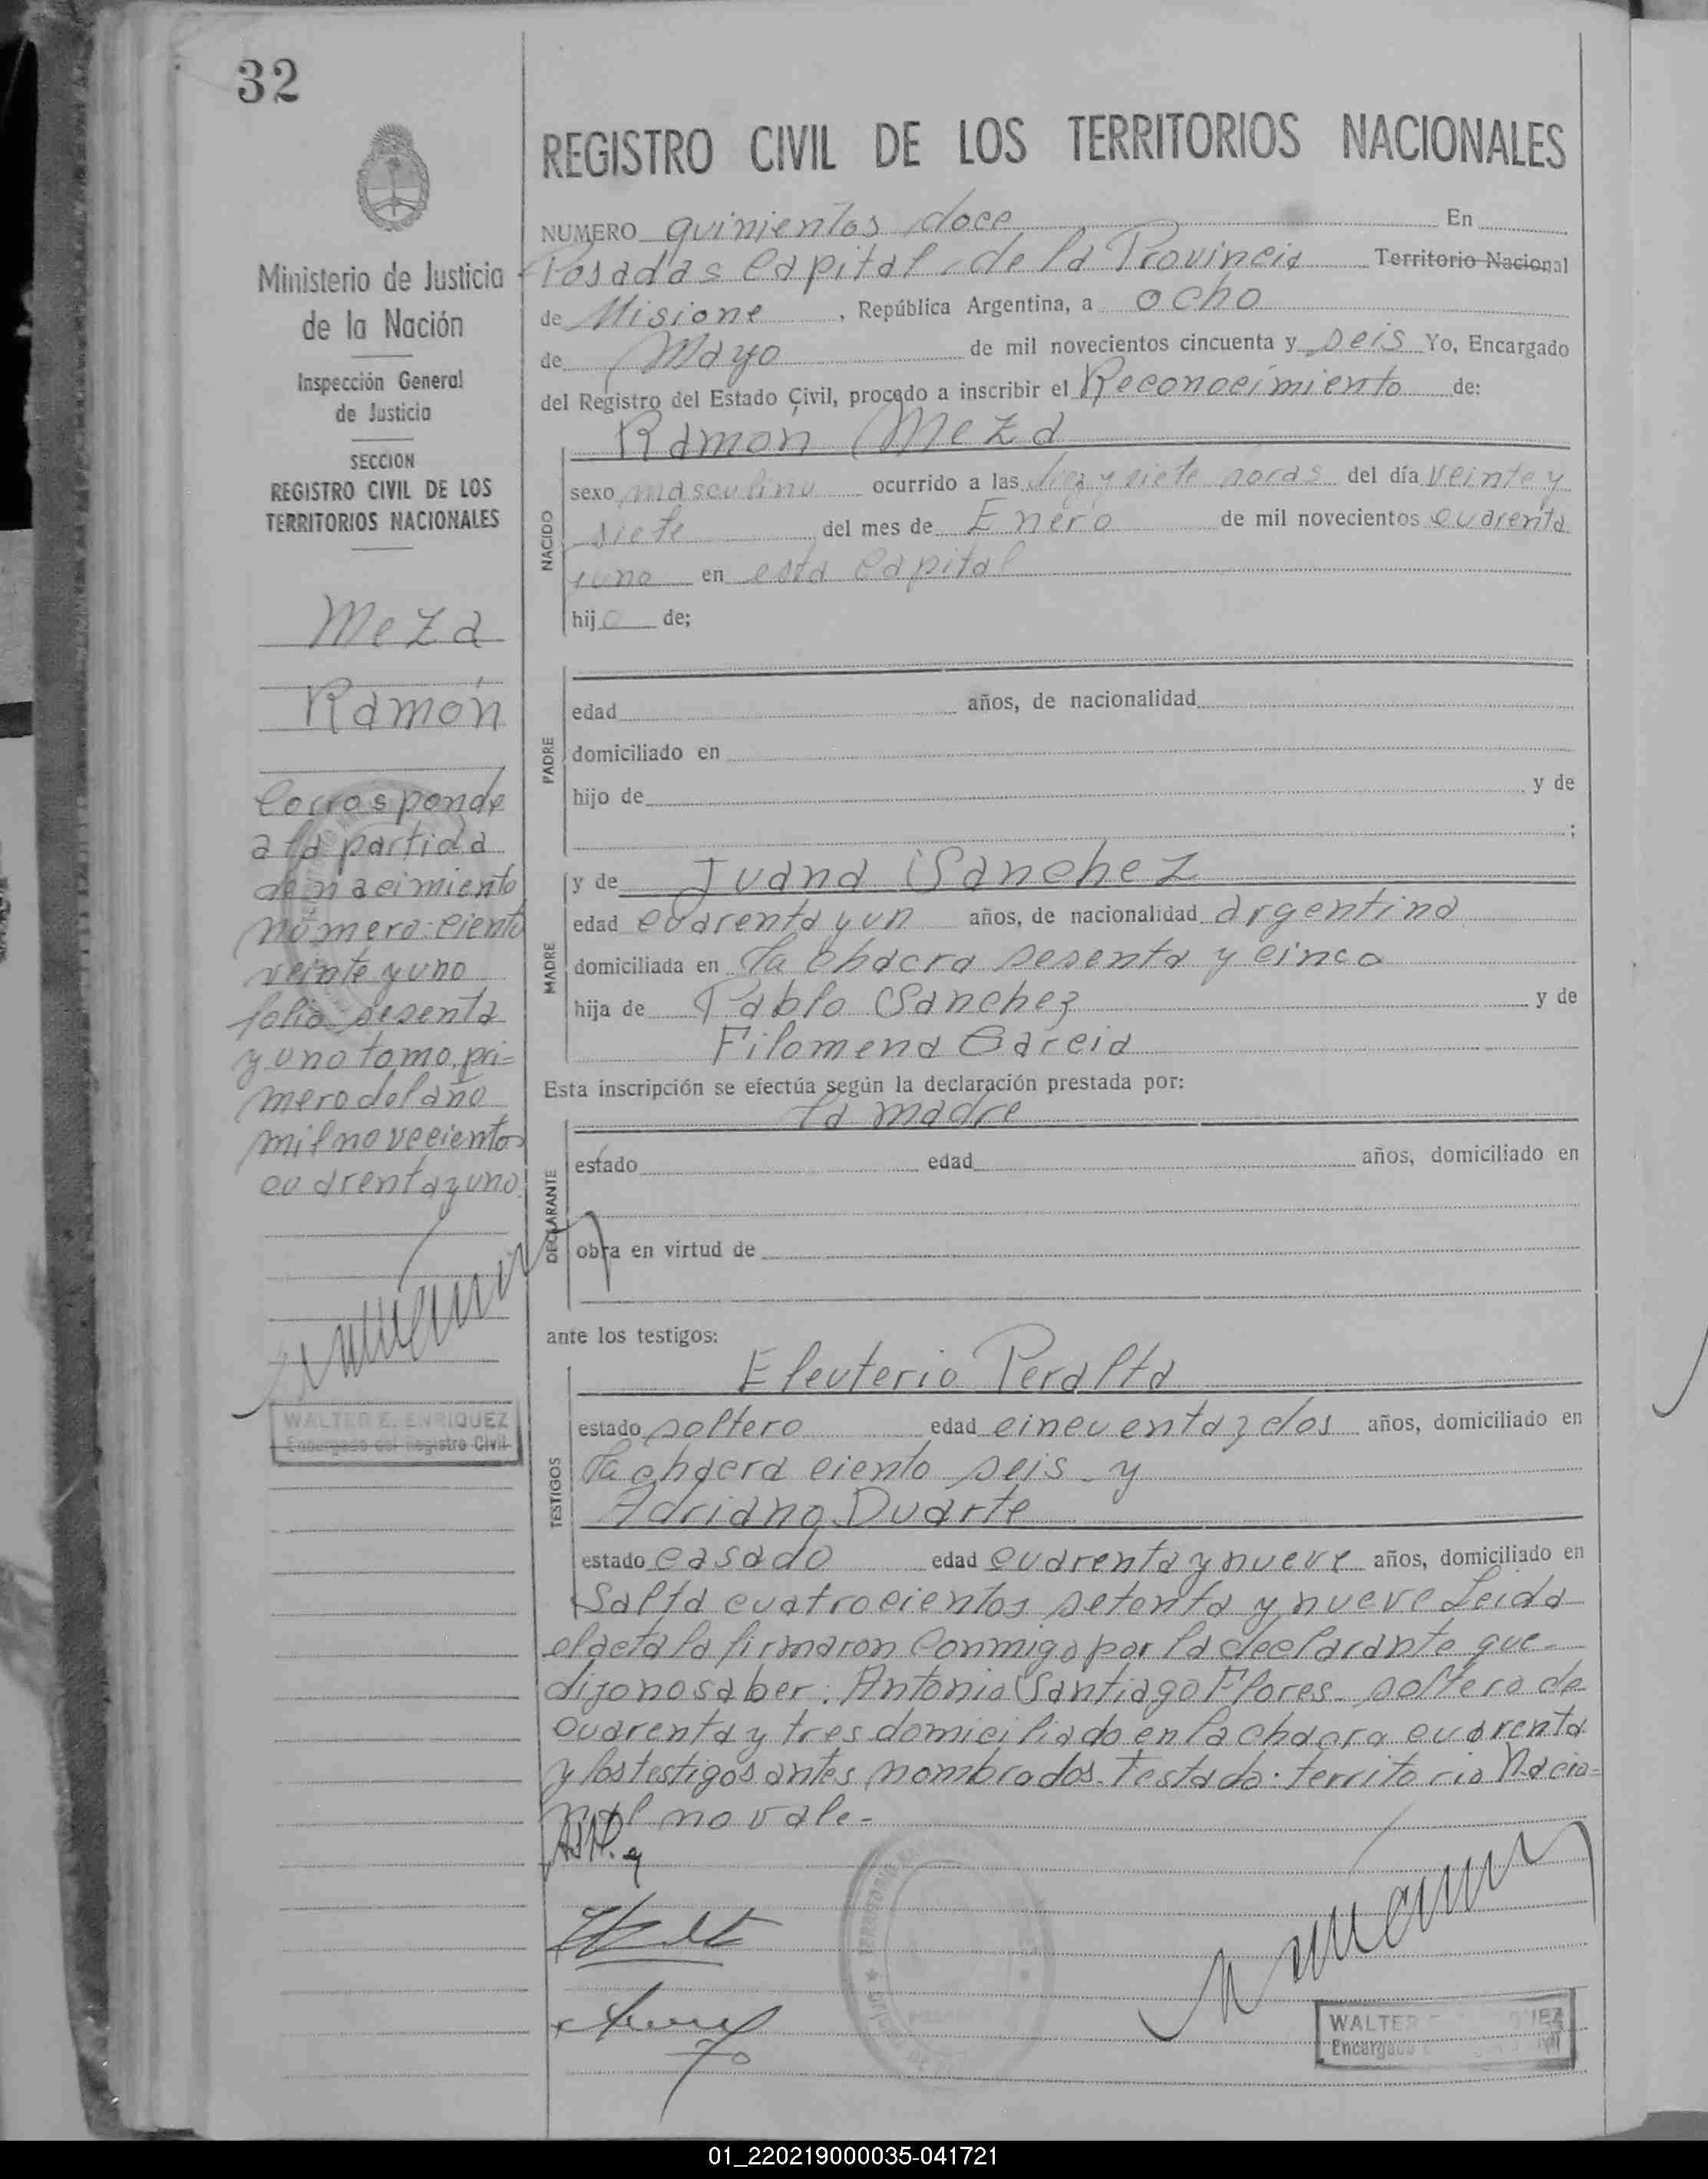 32
REGISTRO CIVIL DE LOS TERRITORIOS NACIONALES
Ministerio de Justicia
de la Nación
Inspección General
de Justicia
SECCION
REGISTRO CIVIL DE LOS
TERRITORIOS NACIONALES
Meza
Ramón
Corresponde
a la partida
de nacimiento
número: ciento
veinte y uno
folio sesenta
y uno tomo pri=
mero del año
mil novecientos
cuarenta y uno.
WALTER E. ENRIQUEZ
Encargado del Registro Civil
NUMERO quinientos doce En
Posadas Capital de la Provincia Territorio Nacional
de Misione, República Argentina, a ocho
de Mayo de mil novecientos cincuenta y seis Yo, Encargado
del Registro del Estado Civil, procedo a inscribir el Reconocimiento de:
Ramon Meza
NACIDO
sexo masculino ocurrido a las diez y siete horas del día veinte y
siete del mes de Enero de mil novecientos cuarenta
y uno en esta Capital
hijo de;
PADRE
edad años, de nacionalidad
domiciliado en
hijo de y de
;
MADRE
y de Juana Sanchez
edad cuarenta y un años, de nacionalidad argentina
domiciliada en la chacra sesenta y cinco
hija de Pablo Sanchez y de
Filomena Garcia
Esta inscripción se efectúa según la declaración prestada por:
la madre
DECLARANTE
estado edad años, domiciliado en
obra en virtud de
ante los testigos:
TESTIGOS
Eleuterio Peralta
estado soltero edad cincuenta y dos años, domiciliado en
la chacra ciento seis - y
Adriano Duarte
estado casado edad cuarenta y nueve años, domiciliado en
Salta cuatrocientos setenta y nueve Leida
el acta la firmaron conmigo por la declarante que
dijo no saber: Antonio Santiago Flores - soltero de
cuarenta y tres domiciliado en la chacra cuarenta
y los testigos antes nombrados. Testado: territorio Nacio=
nal no vale.-
WALTER
Encargado
01_220219000035-041721